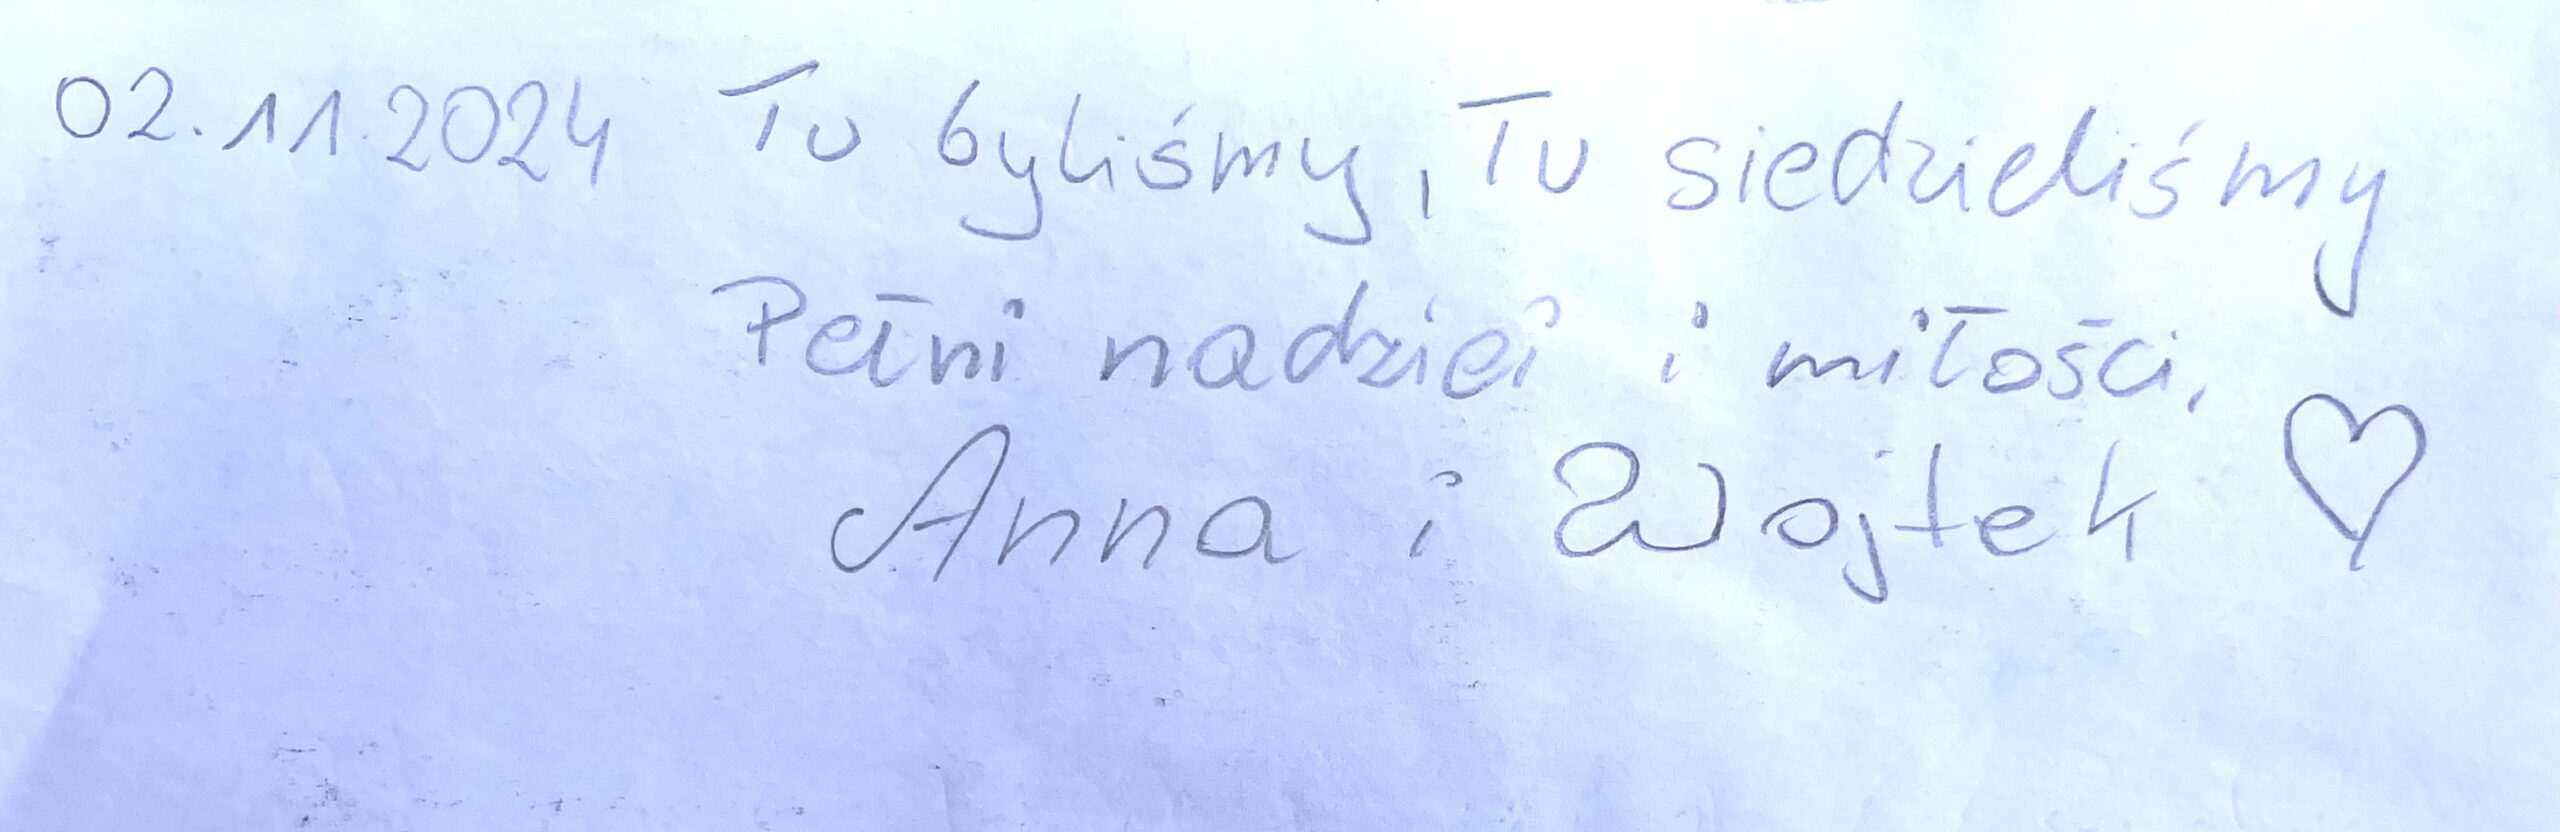 02.11.2024 Tu byliśmy, Tu siedzieliśmy
Pełni nadziei i miłości,
Anna i Wojtek ♡